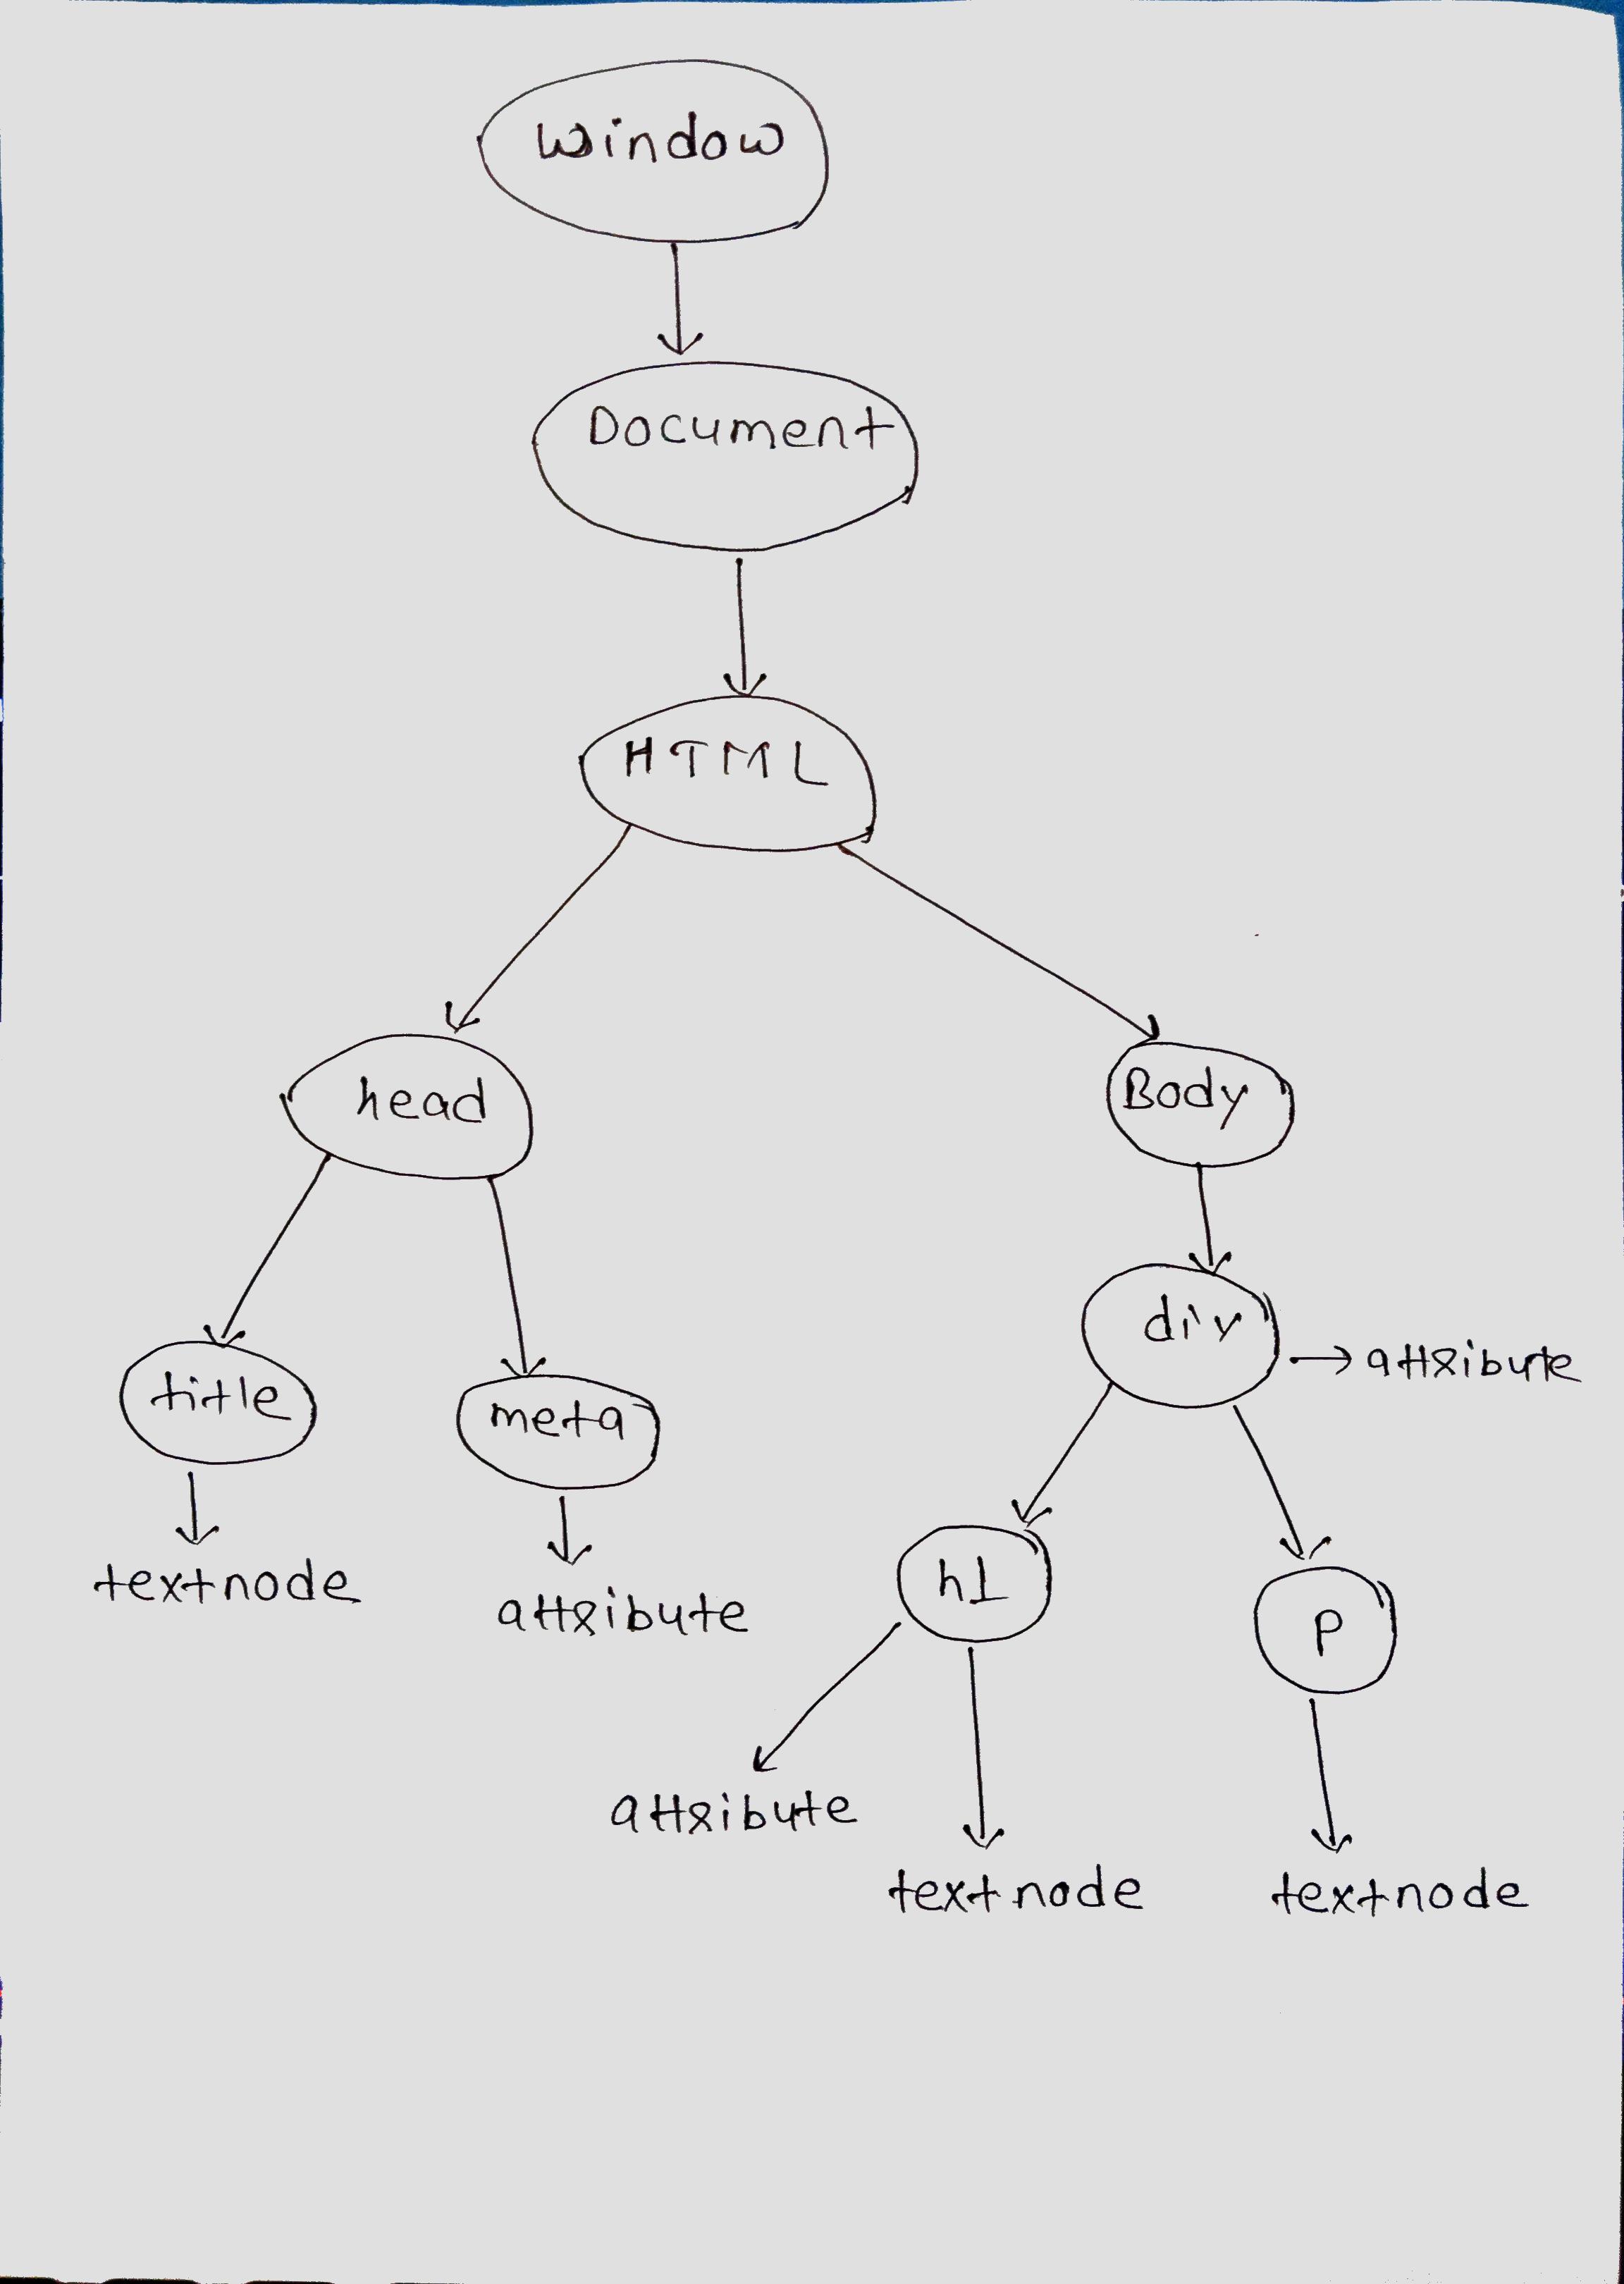 Window
Document
HTML
head
Body
div
attribute
title
meta
textnode
attribute
h1
P
attribute
textnode
textnode